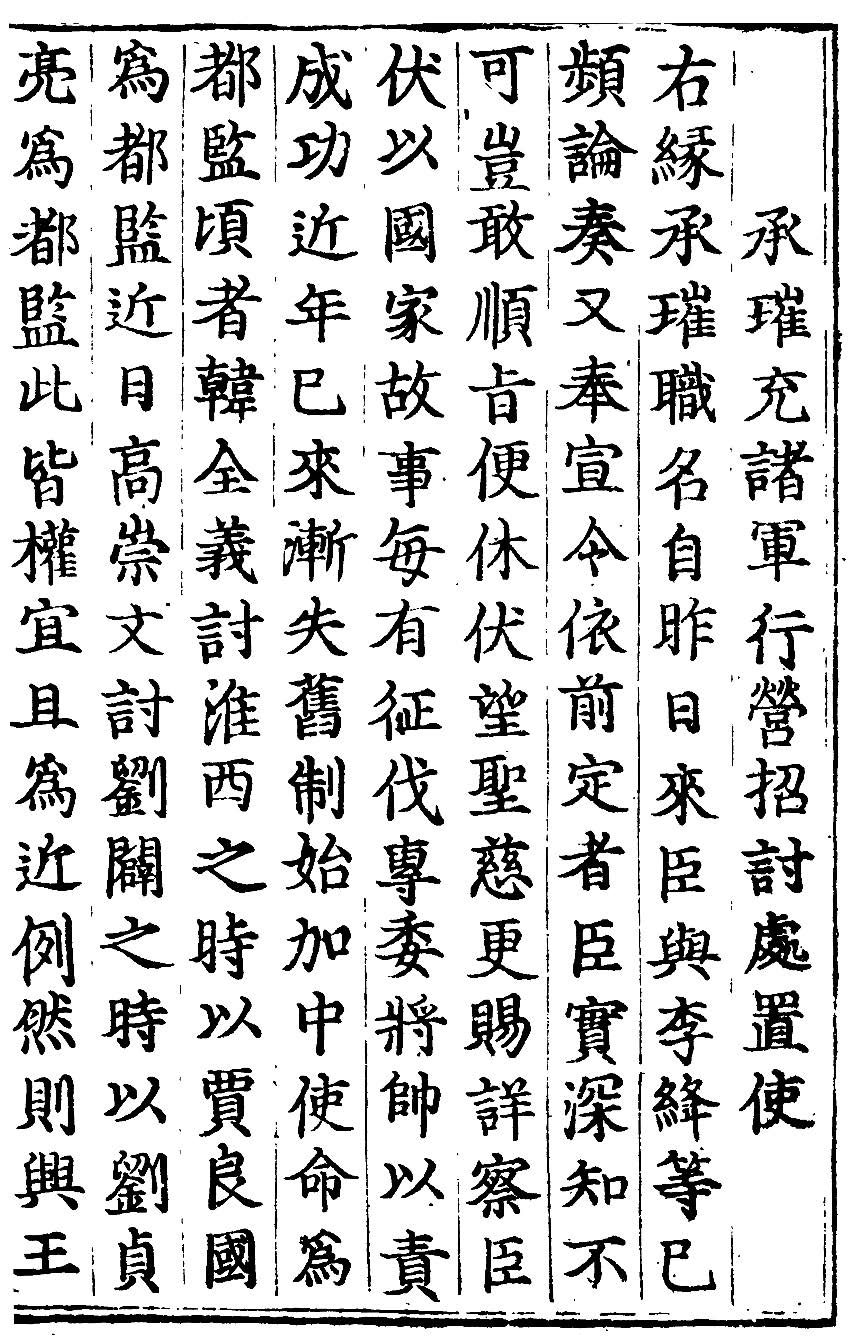 承璀充諸軍行營招討處置使
右縁承璀職名自昨日來臣與李絳等已
頻論奏又奉宣令依前定者臣實深知不
可豈敢順旨便休伏望聖慈更賜詳察臣
伏以國家故事每有征伐專委將帥以責
成功近年已來漸失舊制始加中使命爲
都監頃者韓全義討淮西之時以賈良國
爲都監近日高崇文討劉闢之時以劉貞
亮爲都監此皆權宜且爲近例然則興王